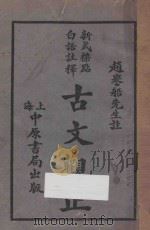 趙崟船先生註
新式標點
白話註釋
古文觀止
上海
中原書局出版